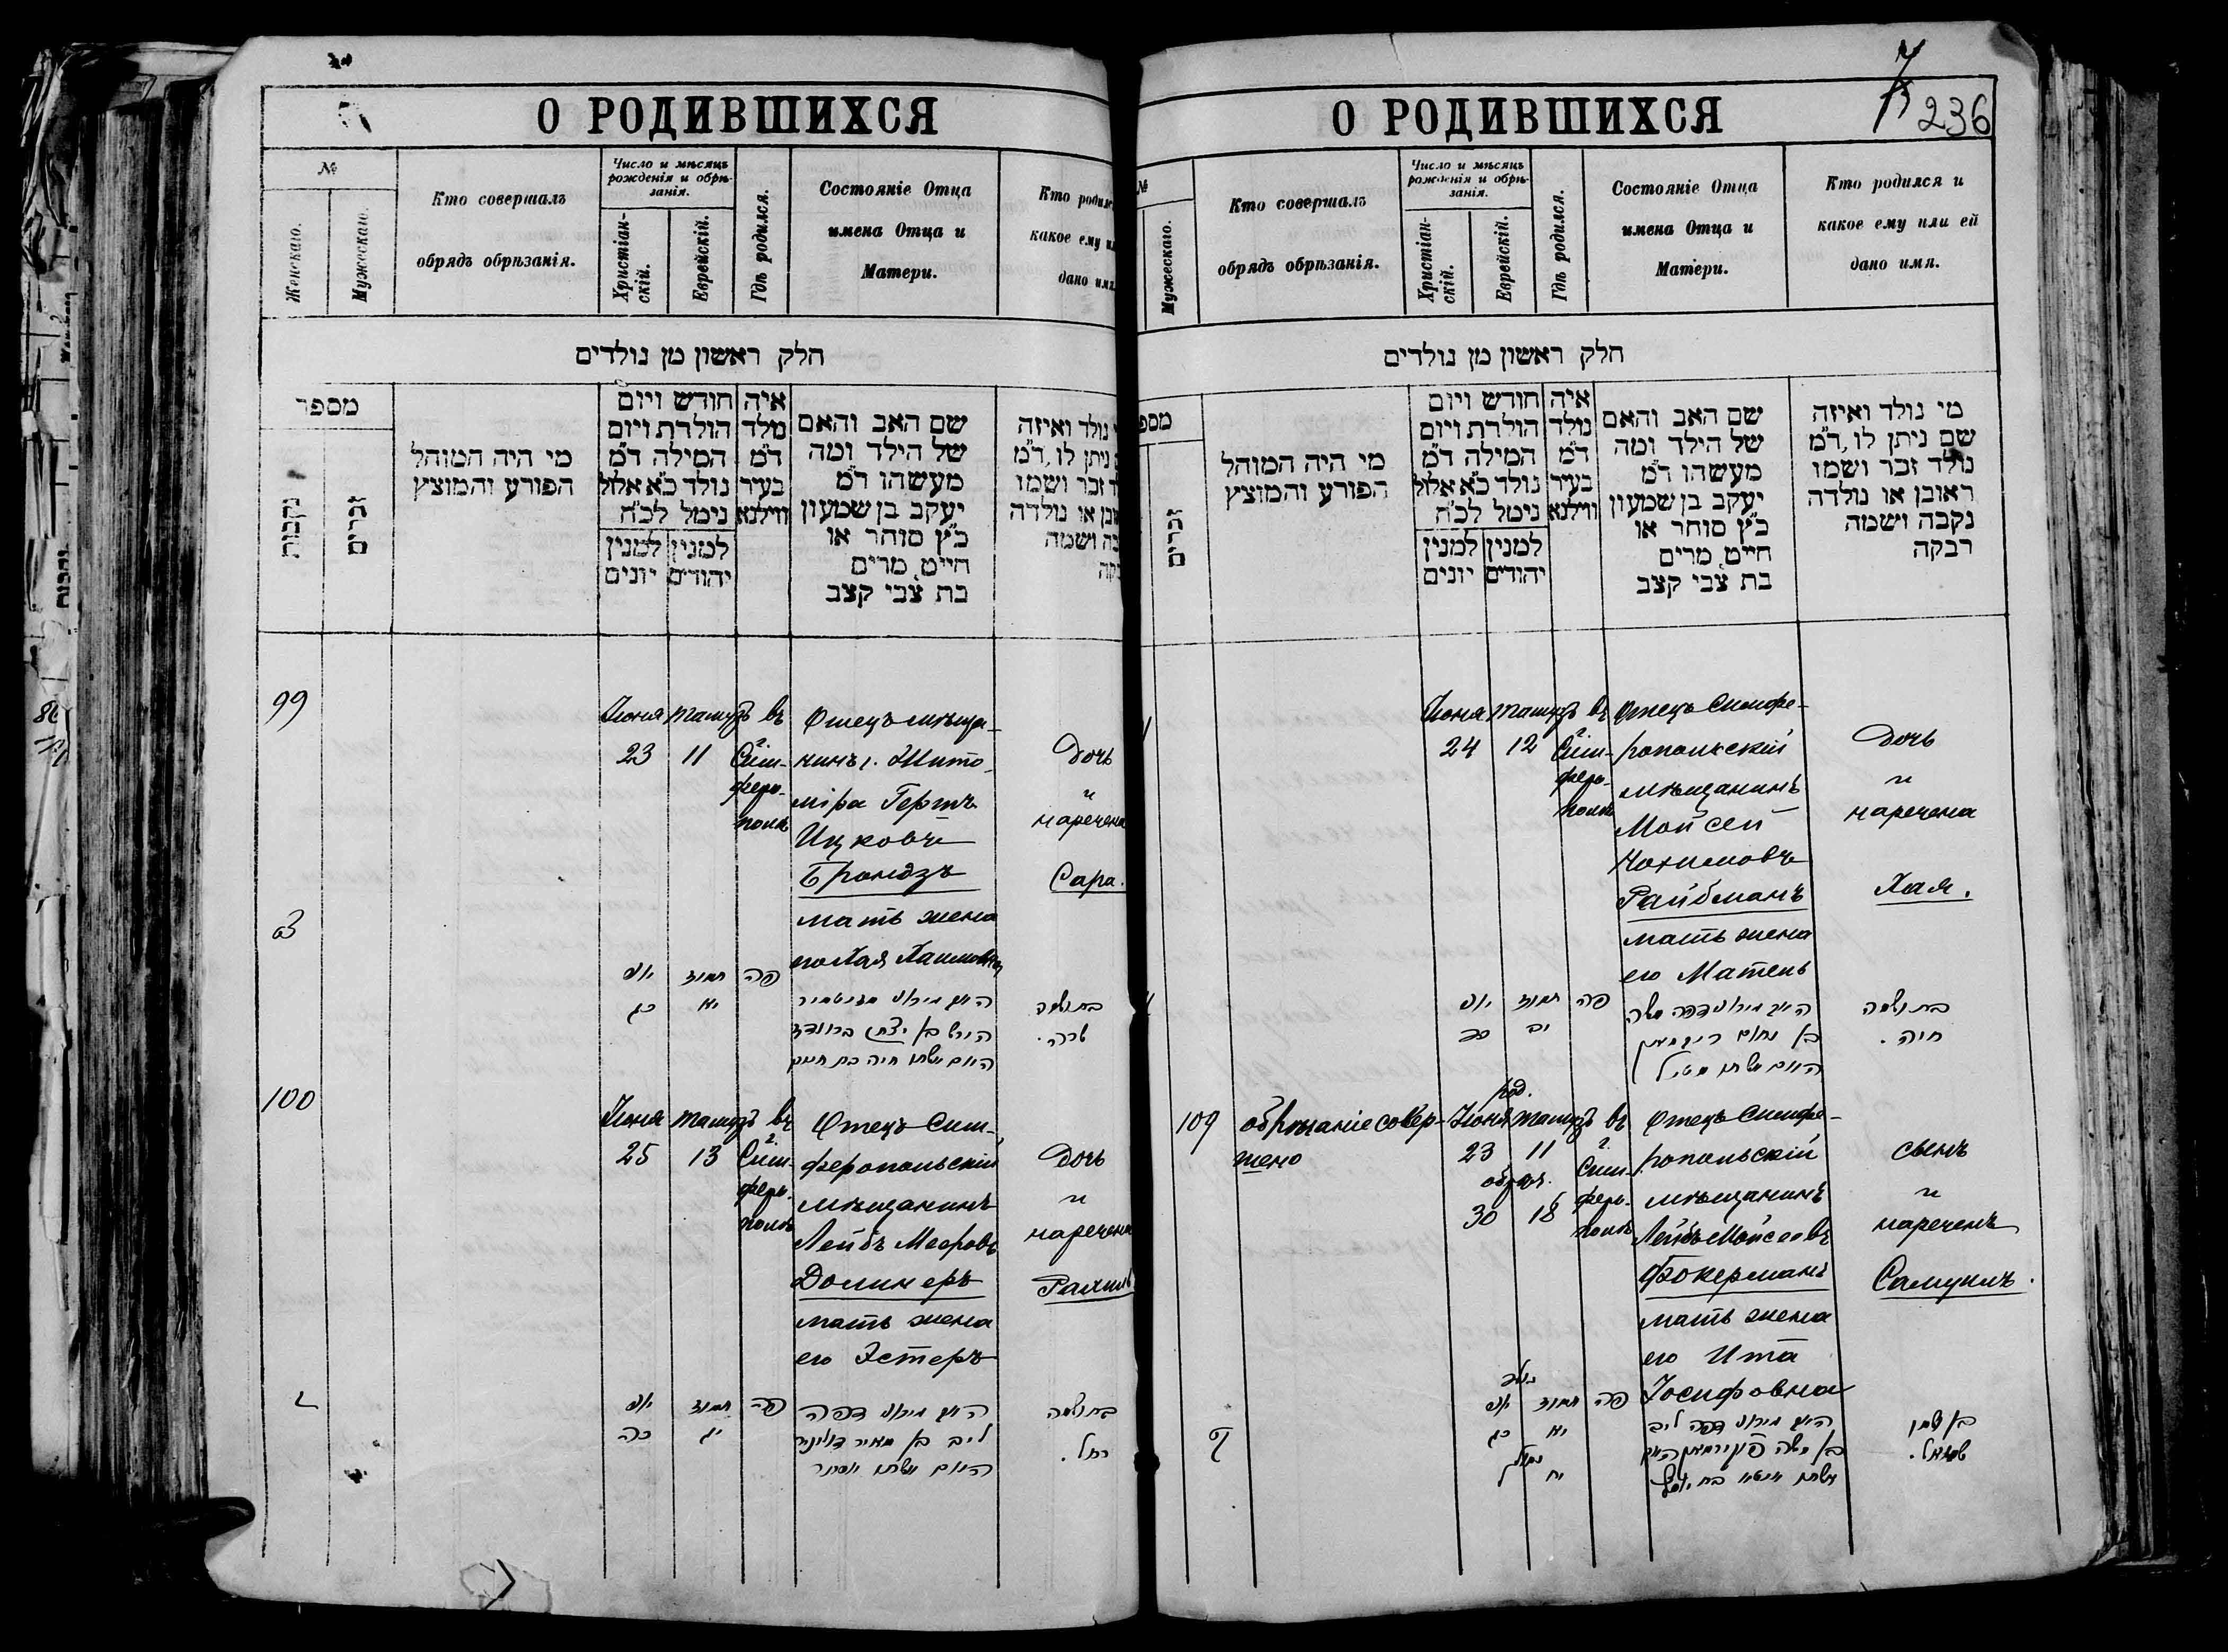 О РОДИВШИХСЯ
№
Женскаго.
Мужескаго.
Кто совершалъ
обрядъ обрѣзанія.
Число и мѣсяцъ
рожденія и обрѣ-
занія.
Христіан-
скій.
Еврейскій.
Гдѣ родился.
Состояніе Отца
имена Отца и
Матери.
Кто родилс
какое ему и
дано имя.
חלק ראשון מן נולדים
מספר
נקבות
זכרים
מי היה המוהל
הפורע והמוצץ
חודש ויום
הולדת ויום
המילה ד״מ
נולד כ״א אלול
נימל לכ״ח
למנין
יהודים
למנין
יונים
איה
נולד
ד״מ
בעיר
ווילנא
שם האב והאם
של הילד ומה
מעשהו ד״מ
יעקב בן שמעון
כ״ץ סוחר או
חייט, מרים
בת צבי קצב
נולד ואיזה
ניתן לו, ד״מ
זכר ושמו
או נולדה
ושמה
99
Іюня
23
Тамузъ
11
въ
г.
Сим-
феро-
полѣ
Отецъ мѣща-
нинъ г. Жито-
міра Гершъ
Ицковъ
Брондзъ
мать жена
его Хая Хаимовна
Дочь
и
наречена
Сара.
יוני
כג
תמוז
יא
פה
הירש בן יצחק
חיה בת חיים
שרה.
100
Іюня
25
Тамузъ
13
въ
г.
Сим-
феро-
полѣ
Отецъ Сим-
феропольскій
мѣщанинъ
Лейбъ Мееровъ
Долинеръ
мать жена
его Эстеръ
Дочь
и
наречена
יוני
כה
תמוז
יג
פה
ליב בן מאיר
רחל.
236
О РОДИВШИХСЯ
№
Мужескаго.
Кто совершалъ
обрядъ обрѣзанія.
Число и мѣсяцъ
рожденія и обрѣ-
занія.
Христіан-
скій.
Еврейскій.
Гдѣ родился.
Состояніе Отца
имена Отца и
Матери.
Кто родился и
какое ему или ей
дано имя.
חלק ראשון מן נולדים
זכרים
מי היה המוהל
הפורע והמוצץ
חודש ויום
הולדת ויום
המילה ד״מ
נולד כ״א אלול
נימל לכ״ח
למנין
יהודים
למנין
יונים
איה
נולד
ד״מ
בעיר
ווילנא
שם האב והאם
של הילד ומה
מעשהו ד״מ
יעקב בן שמעון
כ״ץ סוחר או
חייט, מרים
בת צבי קצב
מי נולד ואיזה
שם ניתן לו, ד״מ
נולד זכר ושמו
ראובן או נולדה
נקבה ושמה
רבקה
Іюня
24
Тамузъ
12
въ
г.
Сим-
феро-
полѣ
Отецъ Симфе-
ропольскій
мѣщанинъ
Мойсей
Нохимовъ
Райбманъ
мать жена
его Матень
Дочь
и
наречена
Хая.
יוני
כד
תמוז
יב
פה
בן נחום
חיה.
109
обрѣзаніе совер-
шено
род.
Іюня
23
Тамузъ
11
обрѣз.
30
18
въ
г.
Сим-
феро-
полѣ
Отецъ Симфе-
ропольскій
мѣщанинъ
Лейбъ Мойсеовъ
Фокерманъ
мать жена
его Ита
Іосифовна
сынъ
и
нареченъ
Самуилъ.
יוני
כג
תמוז
יא
פה
ל
יח
בת יוסף
שמואל.